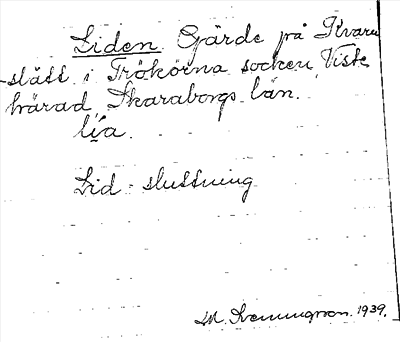 Liden. Gärde på Kvarn
-slätt i Trökörna socken Viste
härad Skaraborgs län.
lía.
Lid = sluttning
M. Svenungsson. 1939.